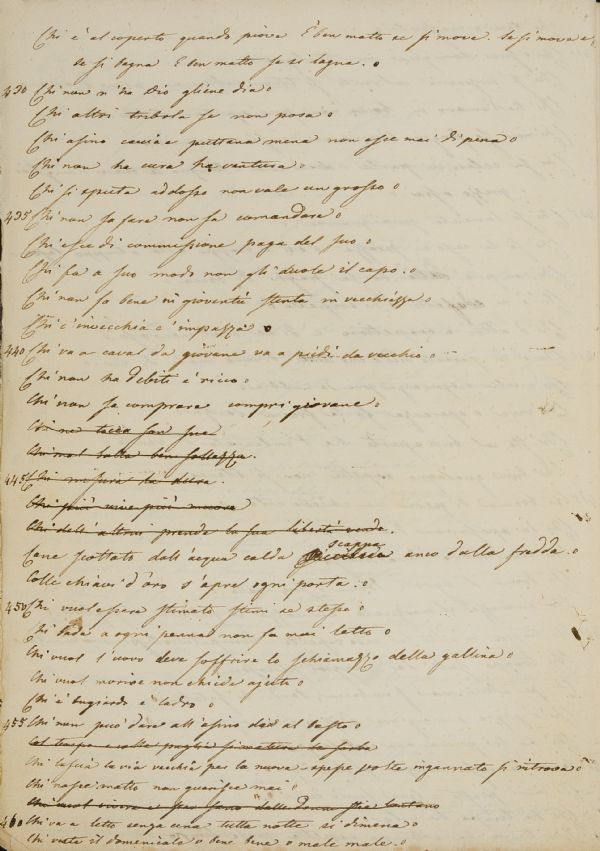 Chi è al coperto quando piove È ben matto se si move. Se si move e
se si bagna È ben matto se si lagna.
430 Chi non n'ha Dio gliene dia
Chi altri tribola se non posa
Chi asino caccia e puttana mena non esce mai di pena
Chi non ha cura ha ventura
Chi si sputa addosso non vale un grosso
435 Chi non sa fare non sa comandare
Chi esce di commissione paga del suo
Chi fa a suo modo non gli duole il capo.
Chi non fa bene in gioventù stenta in vecchiezza
Chi c'invecchia c'impazza
440 Chi va a caval da giovane va a piedi da vecchio
Chi non ha debiti è ricco
Chi non sa comprare compri giovane
Chi ne tocca son sue
Chi mal balla ben sollazza.
445 Chi misura la dura
Chi più vive più muore
Chi dell'altrui prende la sua libertà vende.
Cane scottato dall'acqua calda scappa anco dalla fredda.
Colle chiavi d'oro s'apre ogni porta.
450 Chi vuol essere stimato stimi se stesso
Chi bada a ogni penna non fa mai letto
Chi vuol l'uovo deve soffrire lo schiamazzo della gallina
Chi vuol morire non chiede ajuto
Chi è bugiardo è ladro
455 Chi non può dare all'asino dia al basto
Col tempo e colle paglie si matura la sorba
Chi lascia la via vecchia per la nuova spesse volte ingannato si ritrova
Chi nasce matto non guarisce mai
Chi vuol vivere e star sano dalle donne stia lontano
460 Chi va a letto senza cena tutta notte si dimena
Chi veste il domenicale o bene bene o male male.